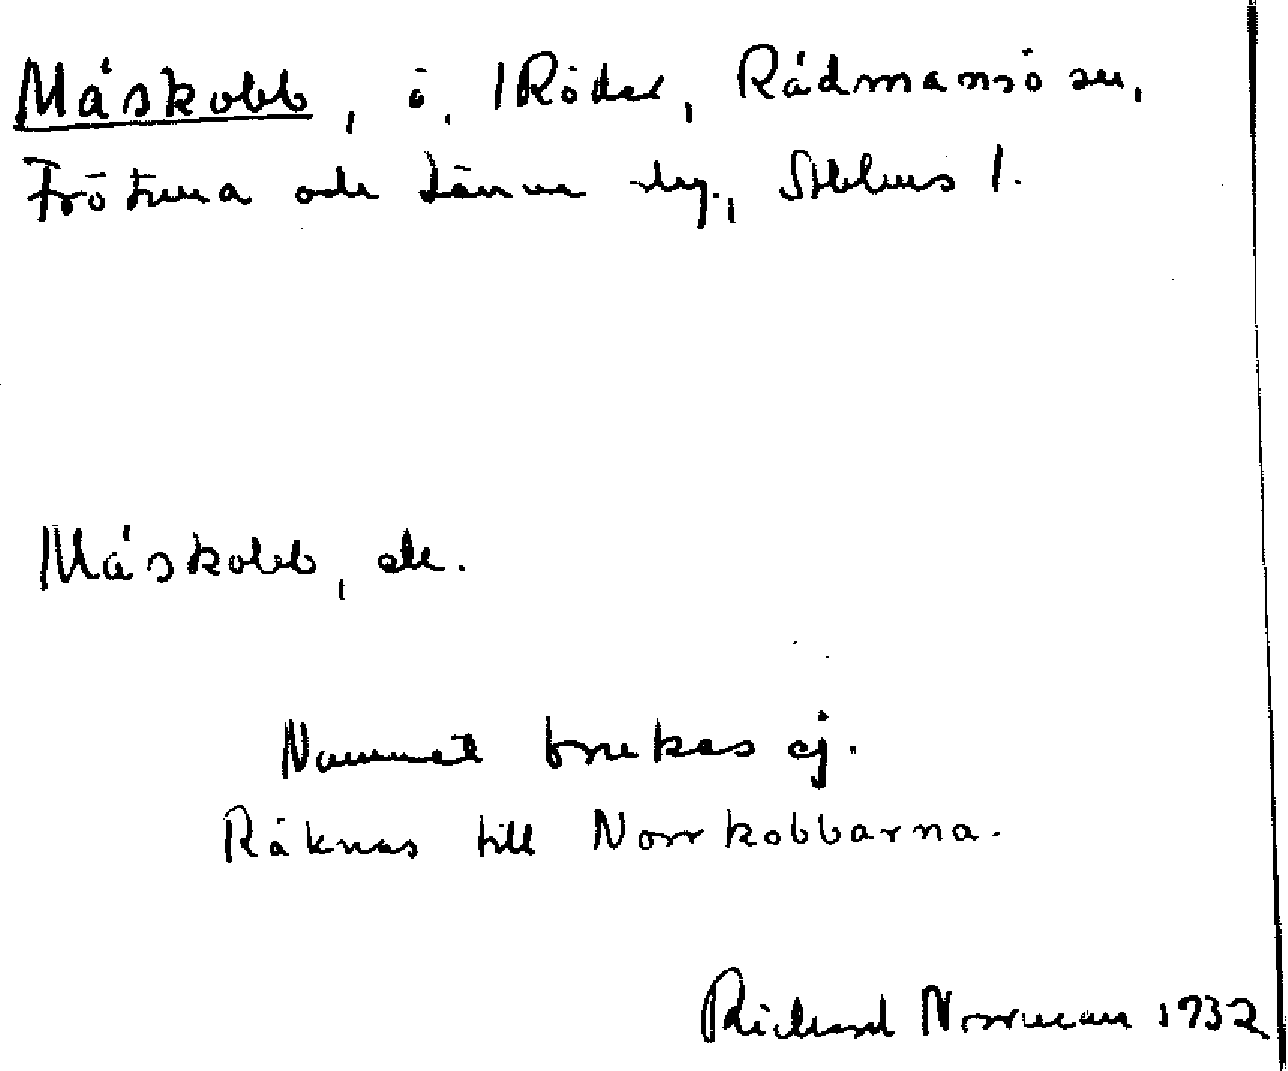 Måskobb, ö, Röder, Rådmansö sn,
Frötuna och Länna slg., Sthlms l.
Måskobb, ek.
Namnet brukas ej.
Räknas till Norrkobbarna.
Richard Norrman 1932